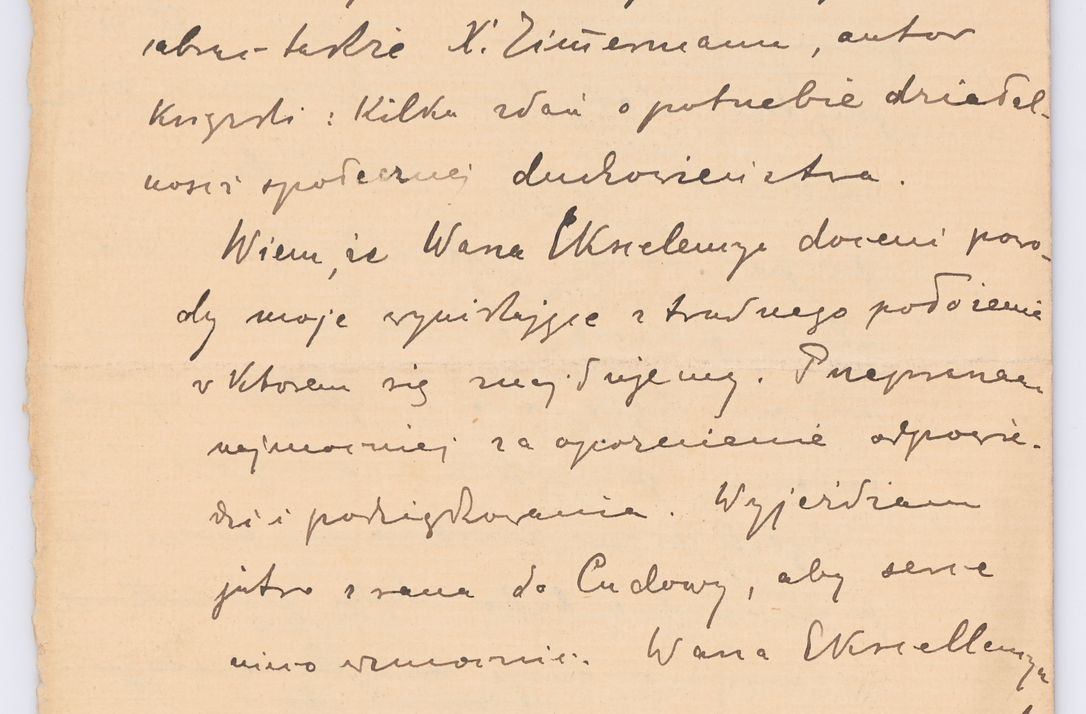 także X. Zimermann, autor
Książki : Kilka zdań o potrzebie dział-
ności społecznej duchowieństwa.
Wiem, że Wasza Ekscelencya doceni powo-
dy moje wynikające z trudnego położenia
w którem się znajdujemy. Przepraszam
najmocniej za opóźnienie odpowie-
dzi i podziękowania. Wyjeżdżam
jutro z rana do Cudowy, aby serce
nieco wzmocnić. Wasza Ekscellencya